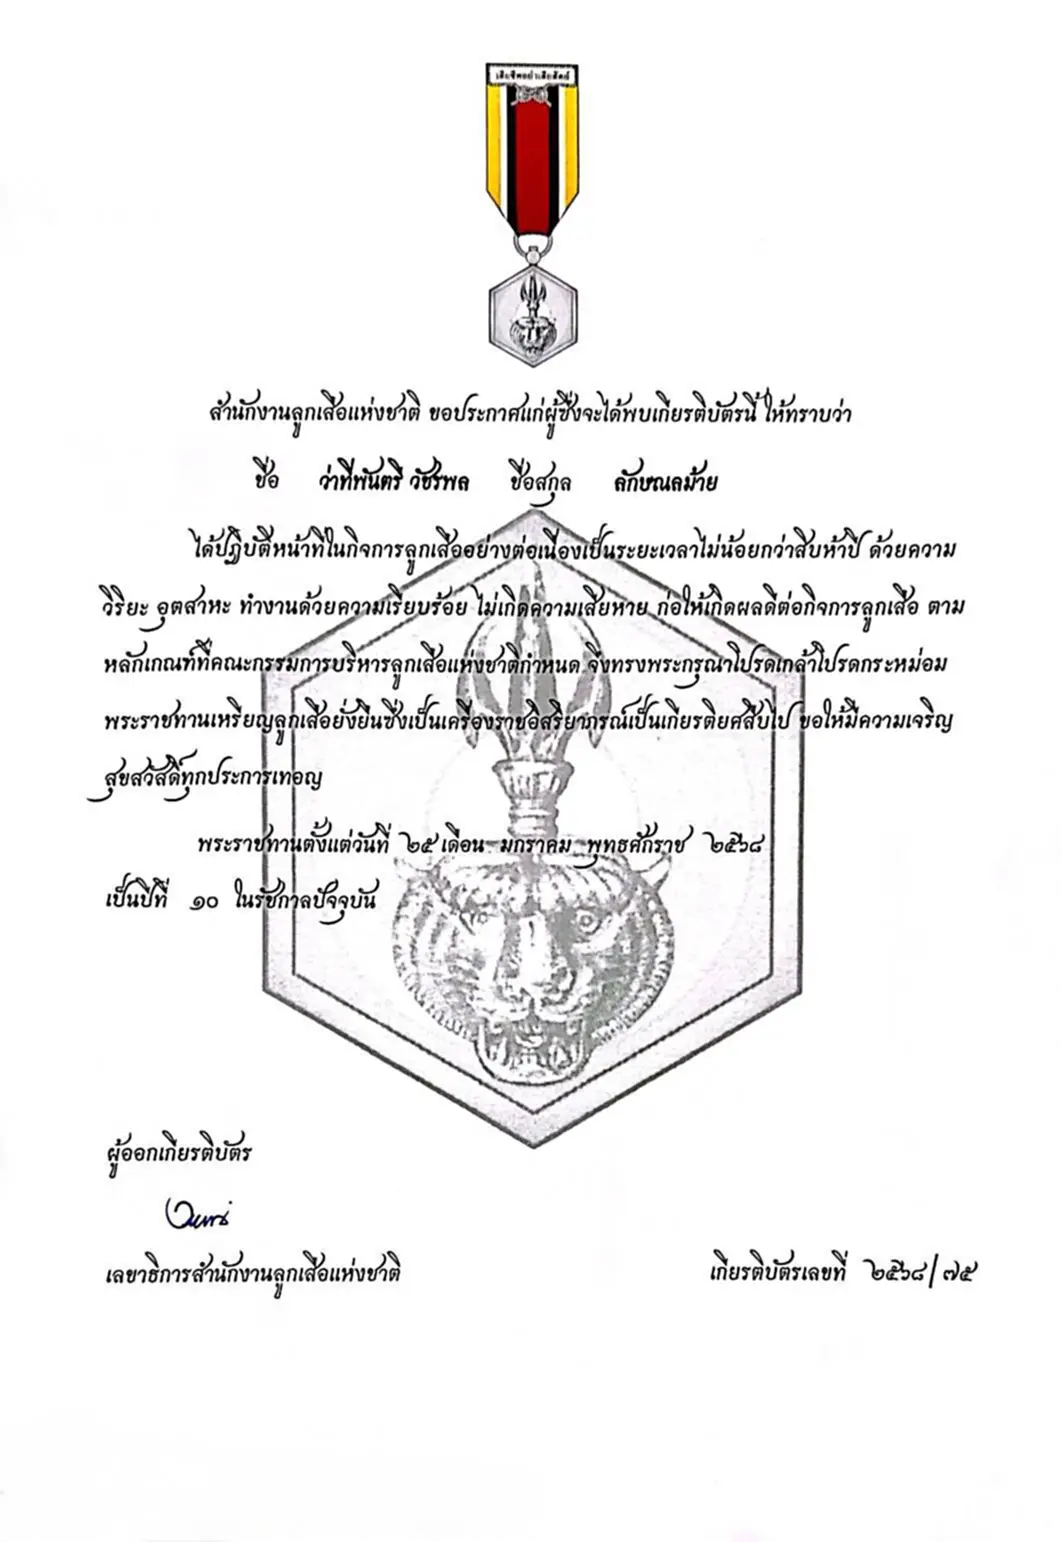 เสียชีพอย่าเสียสัตย์
สำนักงานลูกเสือแห่งชาติ ขอประกาศแก่ผู้ซึ่งจะได้พบเกียรติบัตรนี้ ให้ทราบว่า
ชื่อ ว่าที่พันตรี วัชรพล ชื่อสกุล ลักษณลม้าย
ได้ปฏิบัติหน้าที่ในกิจการลูกเสืออย่างต่อเนื่องเป็นระยะเวลาไม่น้อยกว่าสิบห้าปี ด้วยความ
วิริยะ อุตสาหะ ทำงานด้วยความเรียบร้อย ไม่เกิดความเสียหาย ก่อให้เกิดผลดีต่อกิจการลูกเสือ ตาม
หลักเกณฑ์ที่คณะกรรมการบริหารลูกเสือแห่งชาติกำหนด จึงทรงพระกรุณาโปรดเกล้าโปรดกระหม่อม
พระราชทานเหรียญลูกเสือยั่งยืนซึ่งเป็นเครื่องราชอิสริยาภรณ์เป็นเกียรติยศสืบไป ขอให้มีความเจริญ
สุขสวัสดิ์ทุกประการเทอญ
พระราชทานตั้งแต่วันที่ ๒๕ เดือน มกราคม พุทธศักราช ๒๕๖๘
เป็นปีที่ ๑๐ ในรัชกาลปัจจุบัน
ผู้ออกเกียรติบัตร
เลขาธิการสำนักงานลูกเสือแห่งชาติ
เกียรติบัตรเลขที่ ๒๕๖๘/๗๕